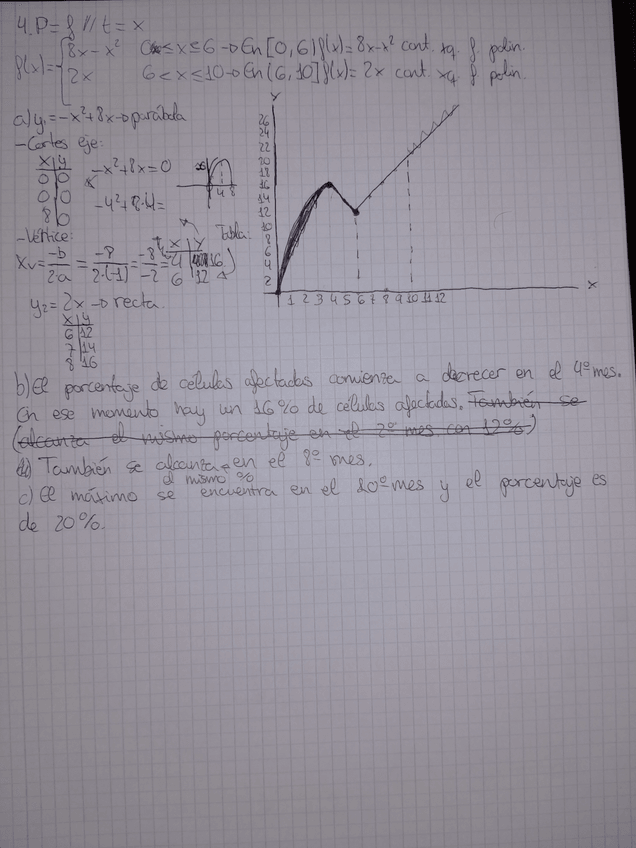 4. P = f // t = x
f(x) = { 8x - x² 0 ≤ x ≤ 6 → En [0, 6) f(x) = 8x - x² cont. xq. f. polin.
2x 6 < x ≤ 10 → En (6, 10] f(x) = 2x cont. xq f. polin.
a) y₁ = -x² + 8x → parábola
- Cortes eje:
x | y
0 | 0
0 | 0
8 | 0
-x² + 8x = 0
-4² + 8·4 =
4 8
- Vértice:
Xv = -b/2a = -8/2·(-1) = -8/-2 = 4
Tabla:
X | Y
4 | 16
6 | 12
y₂ = 2x → recta
x | y
6 | 12
7 | 14
8 | 16
Y
26
24
22
20
18
16
14
12
10
8
6
4
2
1 2 3 4 5 6 7 8 9 10 11 12
X
b) El porcentaje de células afectadas comienza a decrecer en el 4º mes.
En ese momento hay un 16% de células afectadas. También se
(alcanza el mismo porcentaje en el 2º mes con 12%)
También se alcanza en el 8º mes.
el mismo %
c) El máximo se encuentra en el 10º mes y el porcentaje es
de 20%.